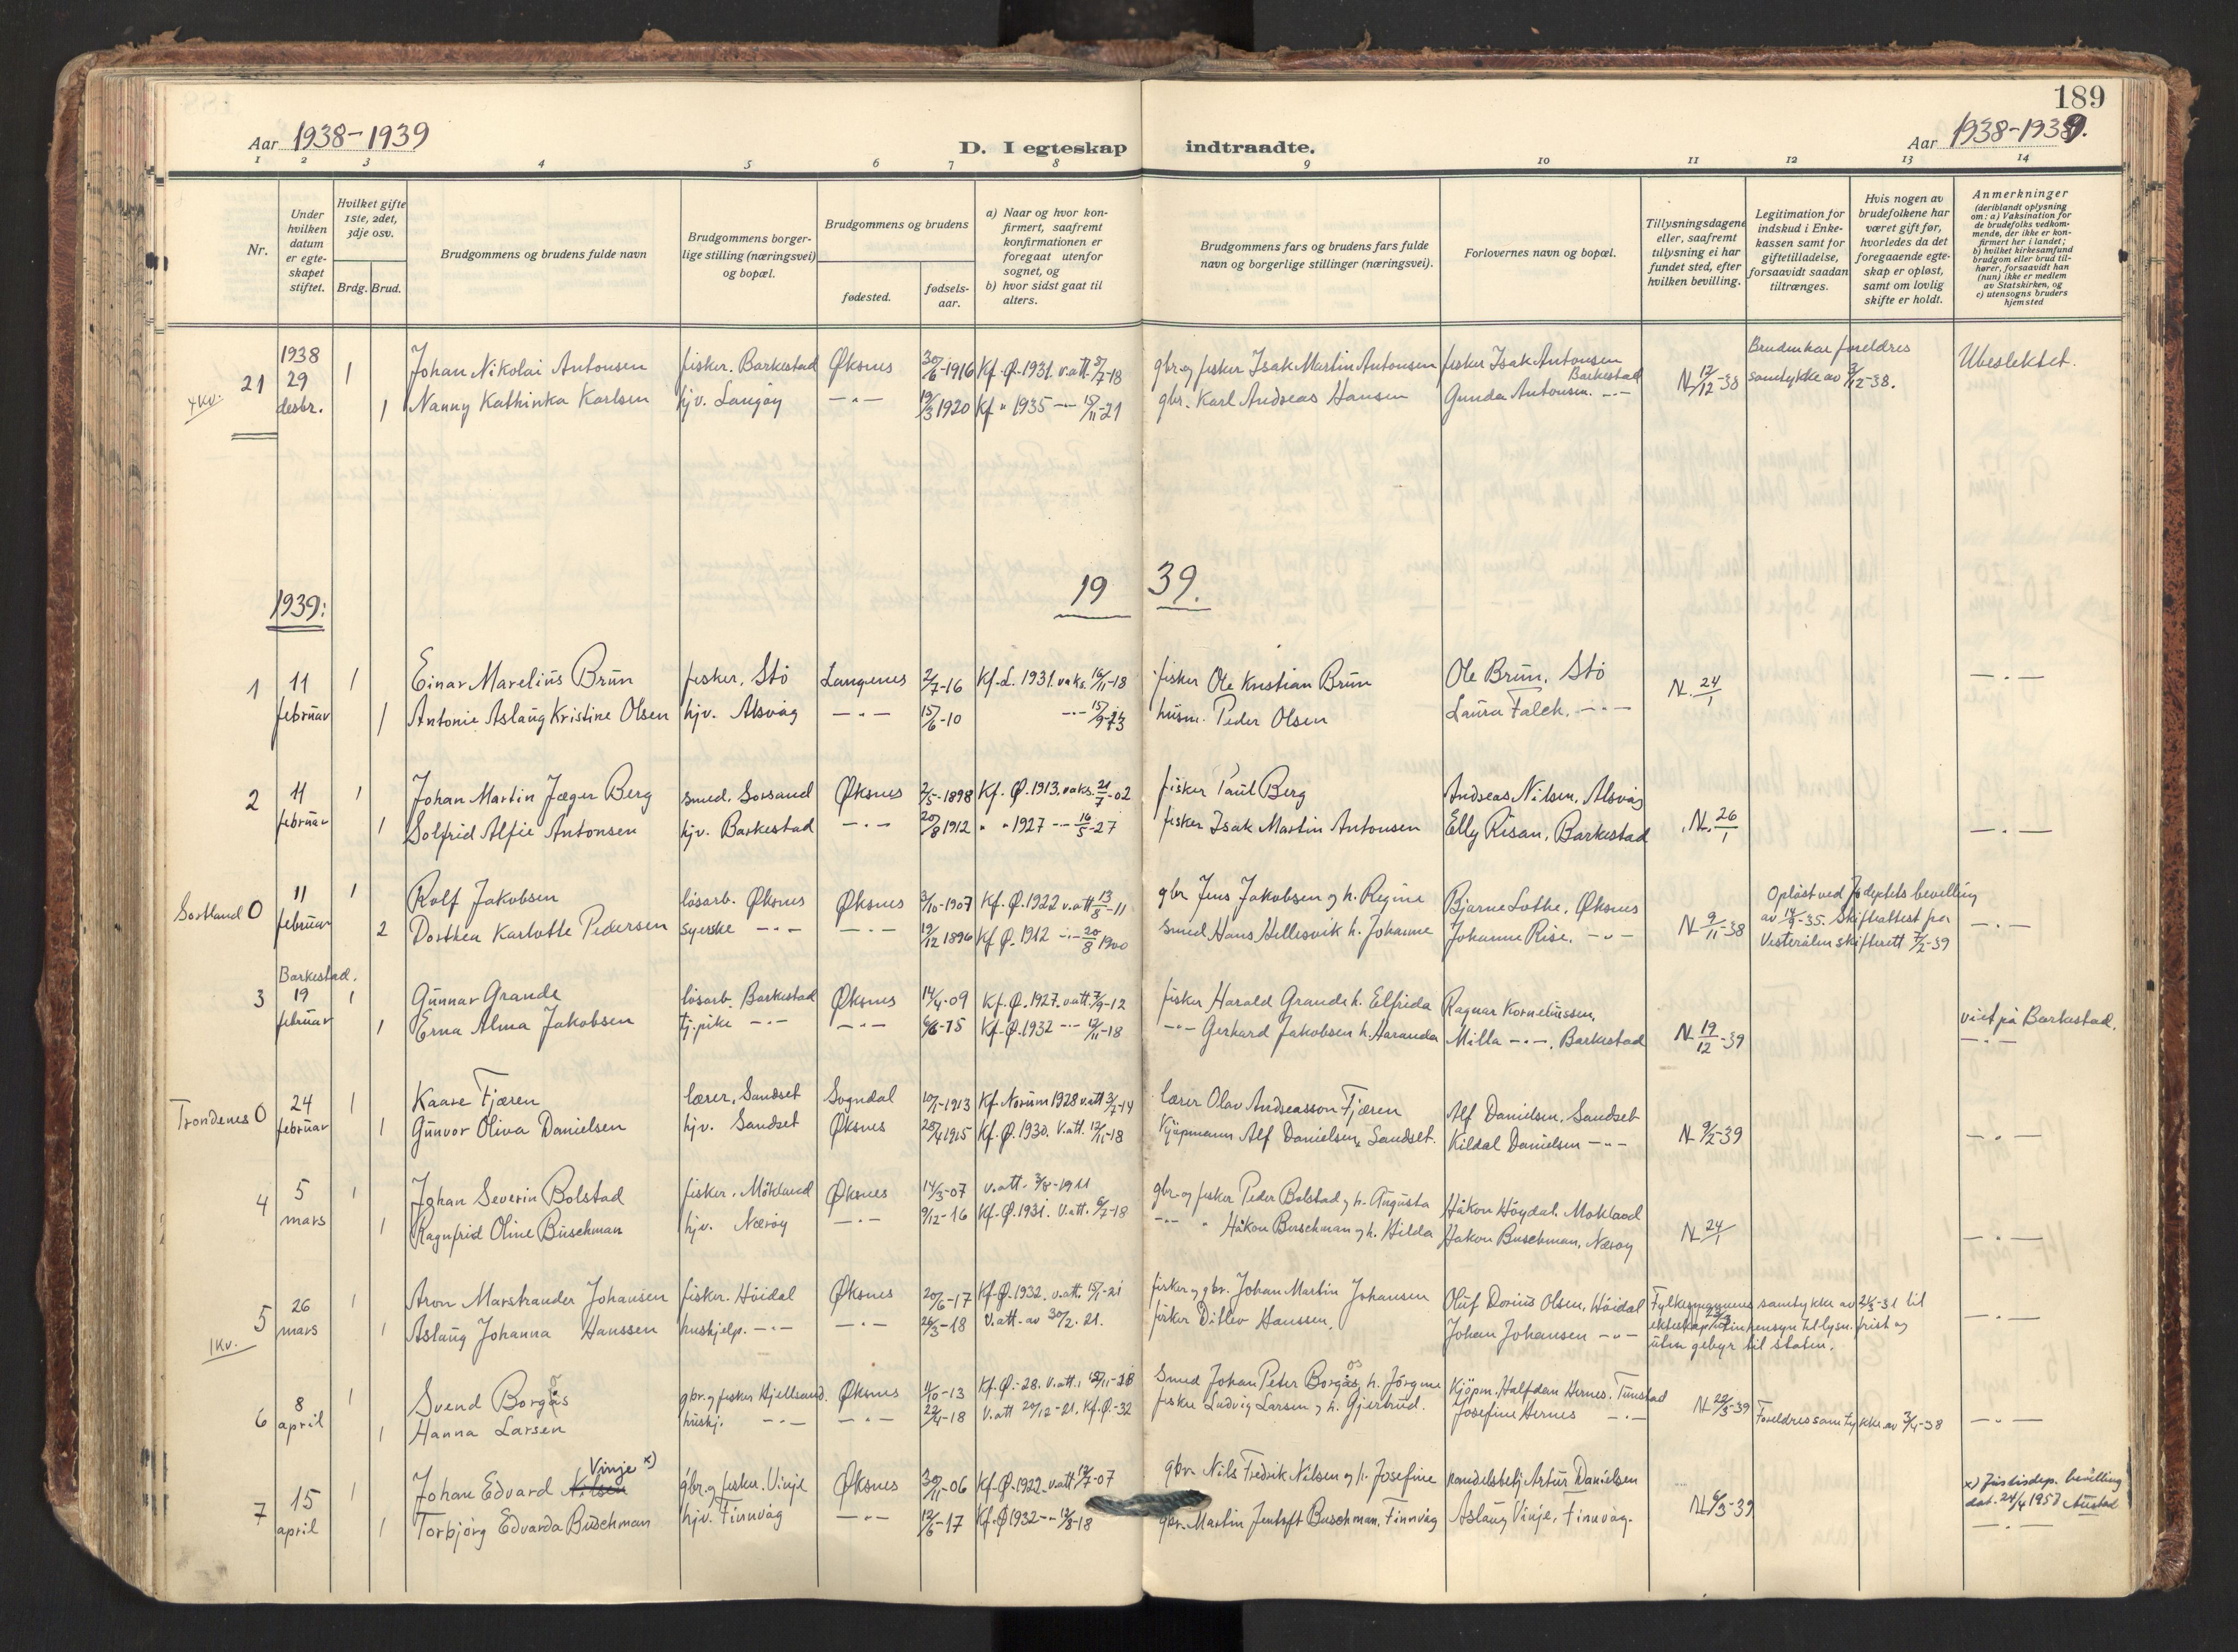 189
Aar 1938-1939
D. I egteskap indtraadte.
Aar 1938-1939.
1 2 3 4 5 6 7 8 9 10 11 12 13 14
Nr.
Under hvilken datum er egte-skapet stiftet.
Hvilket gifte 1ste, 2det, 3dje osv.
Brdg. Brud.
Brudgommens og brudens fulde navn
Brudgommens borger-lige stilling (næringsvei) og bopæl.
Brudgommens og brudens
fødested.
fødsels-aar.
a) Naar og hvor kon-firmert, saafremt konfirmationen er foregaat utenfor sognet, og
b) hvor sidst gaat til alters.
Brudgommens fars og brudens fars fulde navn og borgerlige stillinger (næringsvei).
Forlovernes navn og bopæl.
Tillysningsdagene eller, saafremt tillysning ei har fundet sted, efter hvilken bevilling.
Legitimation for indskud i Enke-kassen samt for giftetilladelse, forsaavidt saadan tiltrænges.
Hvis nogen av brudefolkene har været gift før, hvorledes da det foregaaende egte-skap er opløst, samt om lovlig skifte er holdt.
Anmerkninger (deriblandt oplysning om: a) Vaksination for de brudefolks vedkom-mende, der ikke er kon-firmert her i landet; b) hvilket kirkesamfund brudgom eller brud til-hører, forsaavidt han (hun) ikke er medlem av Statskirken, og c) utensogns bruders hjemsted
4 kv. 21 1938 29 desbr. 1 Johan Nikolai Antonsen fisker. Barkestad Øksnes 30/6-1916 Kf. Ø. 1931. v.att. 3/7-18 gbr. og fisker Isak Martin Antonsen fisker Isak Antonsen Barkestad N. 12/12-38 Bruden har foreldres samtykke av 3/12-38. Ubeslektet.
1 Nanny Kathinka Karlsen hjv. Langøy -"- 19/3 1920 Kf " 1935 -"- 15/11-21 gbr. Karl Andreas Hansen Gunda Antonsen. -"-
1939: 19 39.
1 11 februar 1 Einar Marelius Brun fisker, Stö Langenes 2/7-16 Kf. L. 1931. vaks. 16/11-18 fisker Ole Kristian Brun Ole Brun, Stö N. 24/1 -"-
1 Antonie Aslaug Kristine Olsen hjv. Alsvåg -"- 15/6-10 -"- 15/9-23 husm. Peder Olsen Laura Falch, -"-
2 11 februar 1 Johan Martin Jæger Berg smed. Sorsand Øksnes 2/5-1898 Kf. Ø. 1913. vaks. 21/7-02 fisker Paul Berg Andreas Nilsen, Alsvåg N. 26/1 -"-
1 Solfrid Alfie Antonsen hjv. Barkestad -"- 20/8 1912 " " 1927 -"- 16/5-27 fisker Isak Martin Antonsen Elly Risan, Barkestad
Sortland 0 11 februar 1 Rolf Jakobsen lösarb. Øksnes Øksnes 3/10-1907 Kf. Ø. 1922 v.att 13/8-11 gbr Jens Jakobsen og h. Regine Bjarne Lothe, Øksnes N 9/11-38 Oplöst ved Jo deptets bevilling av 14/9-35. Skifteattest fra Vesterålen skifterett 7/2-39 -"-
2 Dorthea Karlotte Pedersen syerske -"- -"- 19/12 1896 Kf Ø. 1912 -"- 20/8 1900 Smed Hans Hellesvik h. Johanne Johanne Rise. -"-
Barkestad.
3 19 februar 1 Gunnar Grande lösarb. Barkestad Øksnes 14/4-09 Kf. Ø. 1927. v.att. 7/9-12 fisker Harald Grande h. Elfrida Ragnar Korneliussen, N. 19/12-39 viet på Barkestad. -"-
1 Erna Alma Jakobsen tj.pike -"- -"- 6/6-15 Kf. Ø. 1932 -"- 12/11-18 -"- Gerhard Jakobsen h. Haranda Milla -"-, Barkestad
Trondenes 0 24 februar 1 Kaare Fjæren lærer, Sandset Sogndal 10/1-1913 Kf. Norum 1928 v.att 3/7-14 lærer Olav Andreasson Fjæren Alf Danielsen, Sandset N 9/2-39 -"-
1 Gunvor Oliva Danielsen hjv. Sandset Øksnes 25/4 1915 Kf. Ø. 1930. V.att. 12/11-18 Kjöpmann Alf Danielsen, Sandset. Kildal Danielsen -"-
4 5 mars 1 Johan Severin Bolstad fisker. Mökland Øksnes 14/3-07 v.att. 3/8-1911 gbr. og fisker Peder Bolstad og h. Augusta Håkon Höydal. Mokland N 24/1 -"-
1 Ragnfrid Oline Buschman hjv. Næröy -"- 9/12-16 Kf. Ø. 1931. V.att. 6/7-18 -"- " Håkon Buschman og h. Hilda Hakon Buschman, Næroy
1 Kv. 5 26 mars 1 Aron Marstrander Johansen fisker. Höidal Øksnes 20/6-17 Kf. Ø. 1932. v.att. 15/1-21 fisker og gbr. Johan Martin Johansen Oluf Dorius Olsen, Höidal Fylkesmannens samtykke av 21/3-31 til ekteskap uten hensyn til lysn. frist og uten gebyr til staten. -"-
1 Aslaug Johanna Hanssen hushjelp. -"- -"- 26/3-18 V.att. av 30/2. 21. fisker Ditlev Hanssen, Johan Johansen -"-
6 8 april 1 Svend Borgås gbr. og fisker Hjellsand. Øksnes 1/10-13 Kf. Ø.-28. V.att. 12/11-18 Smed Johan Peter Borgås h. Jörgine Kjöpm. Halfdan Hernes. Tunstad N 22/3-39 Foreldres samtykke av 3/4-38 -"-
1 Hanna Larsen huskj. -"- -"- 22/4-18 V.att 20/12-21. Kf. Ø-32 fisker Ludvig Larsen og h. Gjertrud. Josefine Hernes -"-
7 15 april 1 Johan Edvard Nilsen Vinje x) gbr. og fisker. Vinje Øksnes 30/11-06 Kf. Ø. 1922. v.att 12/7-07 gbr. Nils Fredrik Nilsen og h. Josefine handelsbetj Artur Danielsen N. 6/3-39 x) Justisdep. bevilling dat. 24/4 1957 Austad -"-
1 Torbjörg Edvarda Buschman hjv. Finnvåg -"- 12/6-17 Kf. Ø 1932 -"- 12/8-18 gbr. Martin Jentoft Buschman, Finnvåg Aslaug Vinje, Finnvåg.